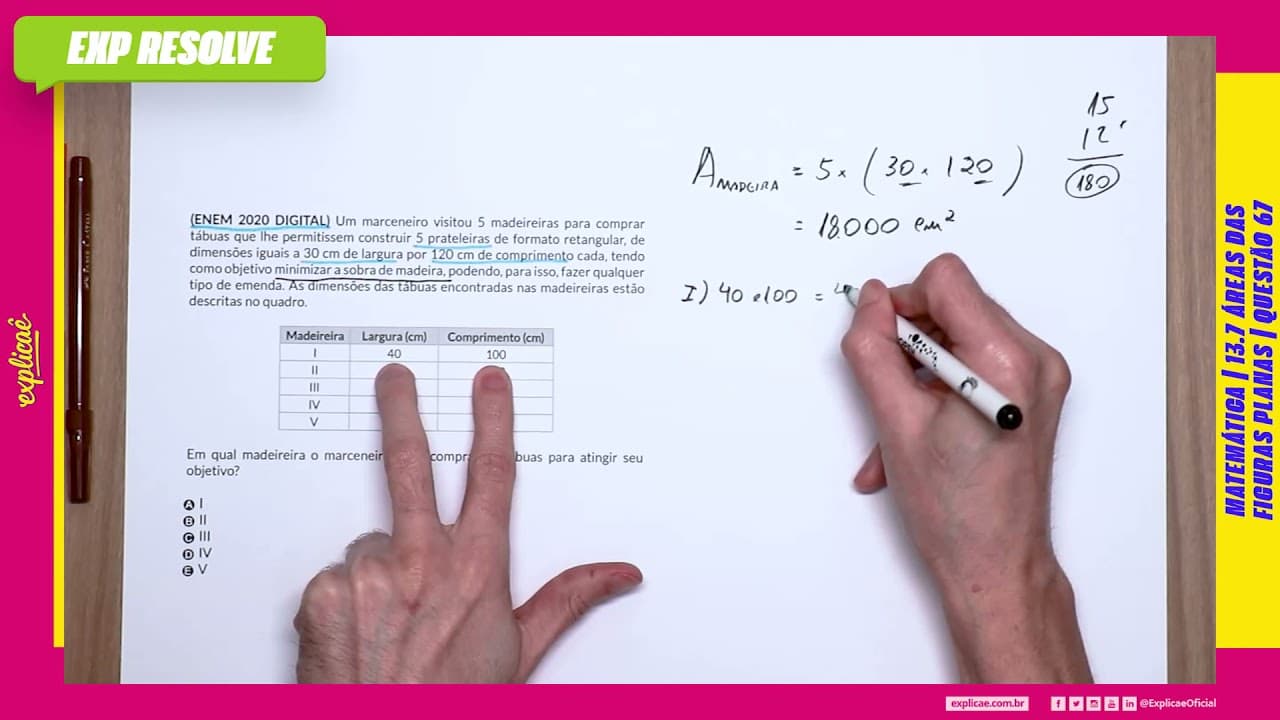 EXP RESOLVE
(ENEM 2020 DIGITAL) Um marceneiro visitou 5 madeireiras para comprar
tábuas que lhe permitissem construir 5 prateleiras de formato retangular, de
dimensões iguais a 30 cm de largura por 120 cm de comprimento cada, tendo
como objetivo minimizar a sobra de madeira, podendo, para isso, fazer qualquer
tipo de emenda. As dimensões das tábuas encontradas nas madeireiras estão
descritas no quadro.
Madeireira Largura (cm) Comprimento (cm)
I 40 100
II
III
IV
V
Em qual madeireira o compr para atingir seu
objetivo?
A I
B II
C III
D IV
E V
A MADEIRA = 5 × ( 30 × 120 )
= 18000 cm²
15
12
180
I) 40 × 100 =
explicaê
MATEMÁTICA | 13.7 ÁREAS DAS
FIGURAS PLANAS | QUESTÃO 67
explicae.com.br
@ExplicaeOficial